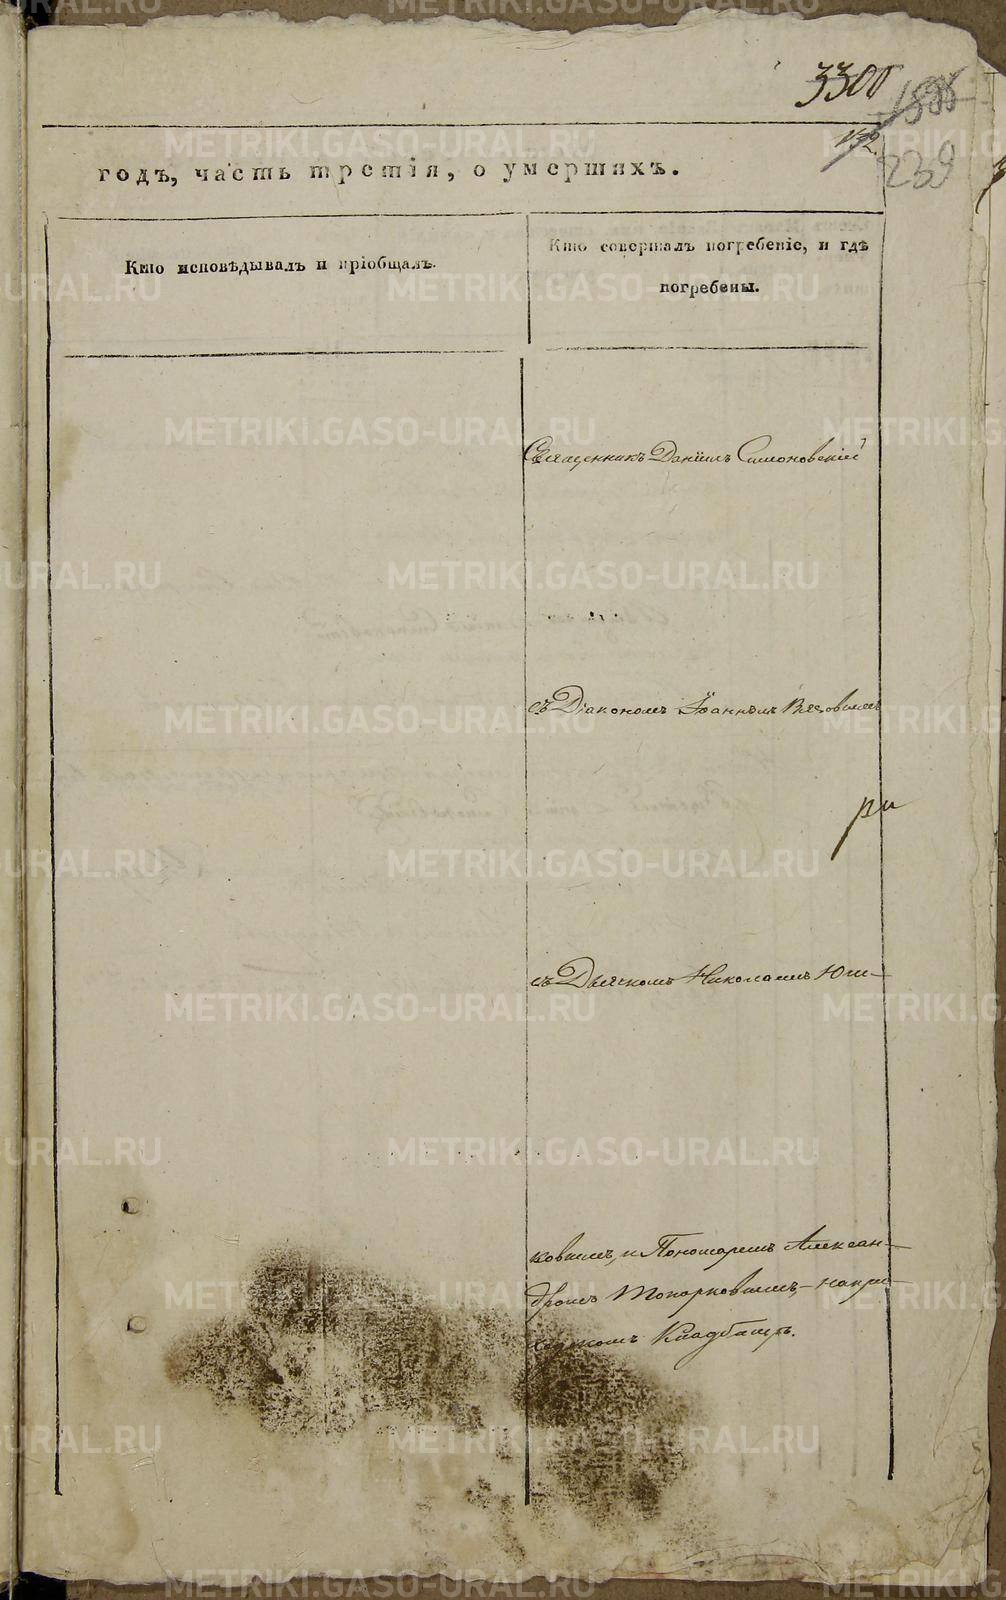 3300
1898
172
239
годъ, часть третія, о умершихъ.
Кто исповѣдывалъ и пріобщалъ.
Кто совершалъ погребеніе, и гдѣ
погребены.
Священникъ Даніилъ Симоновскій
съ Діакономъ Іоанномъ ВяTовымъ
ри
съ Дьячкомъ Николаемъ Юш-
ковымъ, и Пономаремъ Алексан-
дромъ Топорковымъ, на при-
ходскомъ Кладбищѣ.
METRIKI.GASO-URAL.RU